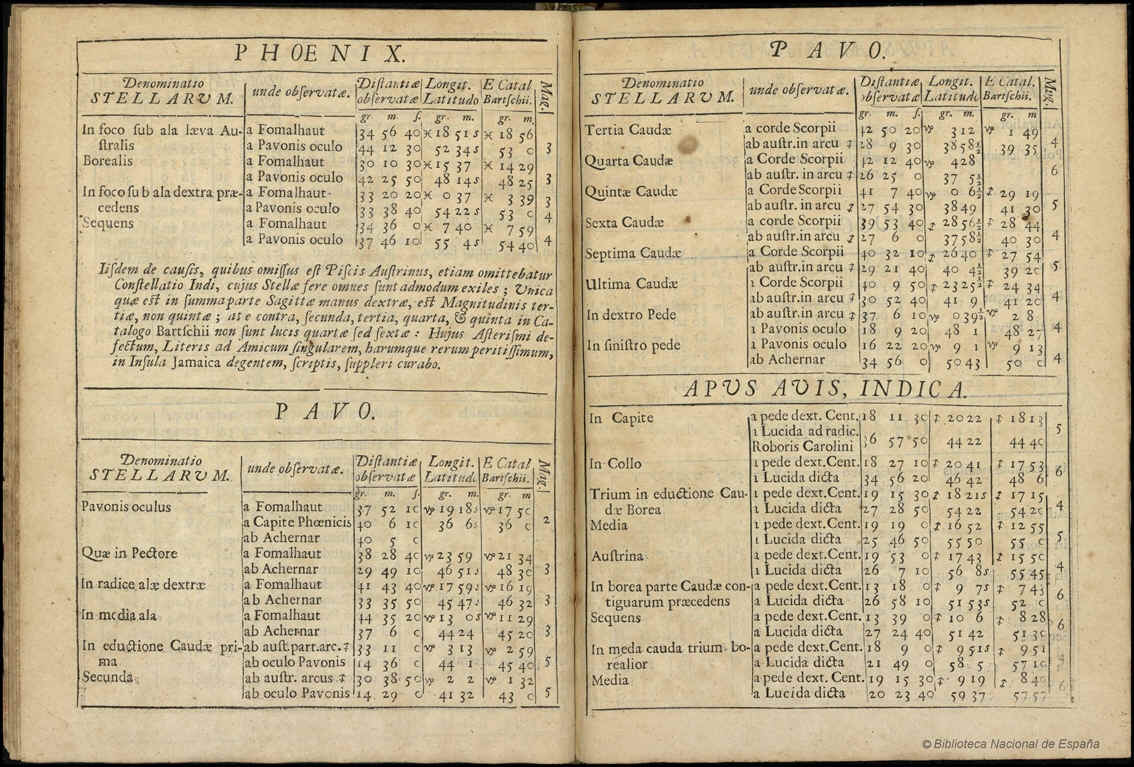 PHOENIX.
Denominatio STELLARUM. unde observatæ. Distantiæ observatæ Longit. Latitudo E Catal Bartschii. Mag.
gr. m. s. gr. m. gr. m.
In foco sub ala læva Au- a Fomalhaut 34 56 40 ♓ 18 51 s ♓ 18 56
stralis a Pavonis oculo 44 12 30 52 34 s 53 0 3
Borealis a Fomalhaut 30 10 30 ♓ 15 37 ♓ 14 29
a Pavonis oculo 42 25 50 48 14 s 48 25 3
In foco sub ala dextra præ- a Fomalhaut 33 20 20 ♓ 0 37 ♓ 3 39
cedens a Pavonis oculo 33 38 40 54 22 s 53 0 4
Sequens a Fomalhaut 34 36 0 ♓ 7 40 ♓ 7 59
a Pavonis oculo 37 46 10 55 4 s 54 40 4
Iisdem de causis, quibus omissus est Piscis Austrinus, etiam omittebatur
Constellatio Indi, cujus Stellæ fere omnes sunt admodum exiles; Unica
quæ est in summa parte Sagittæ manus dextræ, est Magnitudinis ter-
tiæ, non quintæ; at e contra, secunda, tertia, quarta, & quinta in Ca-
talogo Bartschii non sunt lucis quartæ sed sextæ: Hujus Asterismi de-
fectum, Literis ad Amicum singularem, harumque rerum peritissimum,
in Insula Jamaica degentem, scriptis, suppleri curabo.
PAVO.
Denominatio STELLARUM. unde observatæ. Distantiæ observatæ Longit. Latitudo E Catal Bartschii. Mag.
gr. m. s. gr. m. gr. m
Pavonis oculus a Fomalhaut 37 52 10 ♑ 19 18 s ♑ 17 50
a Capite Phœnicis 40 6 10 36 6 s 36 0 2
ab Achernar 40 5 0
Quæ in Pectore a Fomalhaut 38 28 40 ♑ 23 59 ♑ 21 34
ab Achernar 29 49 10 46 51 s 48 30 3
In radice alæ dextræ a Fomalhaut 41 43 40 ♑ 17 59 s ♑ 16 19
ab Achernar 33 35 50 45 47 s 46 32 3
In media ala a Fomalhaut 44 35 20 ♑ 13 0 s ♑ 11 29
ab Achernar 37 6 0 44 24 45 20 3
In eductione Caudæ pri- ab aust. part. arc. ♐ 33 11 0 ♑ 3 13 ♑ 2 59
ma ab oculo Pavonis 14 36 0 44 1 45 40 5
Secunda ab austr. arcus ♐ 30 38 50 ♑ 2 2 ♑ 1 32
ab oculo Pavonis 14 29 0 41 32 43 0 5
PAVO.
Denominatio STELLARUM. unde observatæ. Distantiæ observatæ Longit. Latitudo E Catal. Bartschii. Mag.
gr. m. s. gr. m. gr. m
Tertia Caudæ a corde Scorpii 42 50 20 ♑ 3 12 ♑ 1 49
ab austr. in arcu ♐ 28 9 30 38 58½ 39 35 4
Quarta Caudæ a Corde Scorpii 42 12 40 ♑ 4 28
ab austr. in arcu ♐ 26 25 0 37 5½ 6
Quintæ Caudæ a Corde Scorpii 41 7 40 ♑ 0 6½ ♐ 29 19
ab austr. in arcu ♐ 27 54 30 38 49 41 30 5
Sexta Caudæ a corde Scorpii 39 53 40 ♐ 28 56½ ♐ 28 44
ab austr. in arcu ♐ 27 6 0 37 58½ 40 30 4
Septima Caudæ a Corde Scorpii 40 32 10 ♐ 26 40 ♐ 27 54
ab austr. in arcu ♐ 29 21 40 40 4½ 39 20 5
Ultima Caudæ a Corde Scorpii 40 9 50 ♐ 23 25½ ♐ 24 34
ab austr. in arcu ♐ 30 52 40 41 9 41 20 4
In dextro Pede ab austr. in arcu ♐ 37 6 10 ♑ 0 39½ ♑ 2 8
a Pavonis oculo 18 9 20 48 1 48 27 4
In sinistro pede a Pavonis oculo 16 22 20 ♑ 9 1 ♑ 9 13
ab Achernar 34 56 0 50 43 50 0 4
APUS AVIS, INDICA.
In Capite a pede dext. Cent. 18 11 30 ♐ 20 22 ♐ 18 13
a Lucida ad radic. 5
Roboris Carolini 36 57 50 44 22 44 40
In Collo a pede dext. Cent. 18 27 10 ♐ 20 41 ♐ 17 53
a Lucida dicta 34 56 20 46 42 48 6 6
Trium in eductione Cau- a pede dext. Cent. 19 15 30 ♐ 18 21 s ♐ 17 15
dæ Borea a Lucida dicta 27 28 50 54 22 54 20 4
Media a pede dext. Cent. 19 19 0 ♐ 16 52 ♐ 12 55
a Lucida dicta 25 46 50 55 50 55 0 5
Austrina a pede dext. Cent. 19 53 0 ♐ 17 43 ♐ 15 50
a Lucida dicta 26 7 10 56 8 s 55 45 4
In borea parte Caudæ con- a pede dext. Cent. 13 18 0 ♐ 9 7 s ♐ 7 43
tiguarum præcedens a Lucida dicta 26 58 10 51 53 s 52 0 6
Sequens a pede dext. Cent. 13 39 0 ♐ 10 6 ♐ 8 28
a Lucida dicta 27 24 40 51 42 51 30 6
In meda cauda trium bo- a pede dext. Cent. 18 9 0 ♐ 9 51 s ♐ 9 51
realior a Lucida dicta 21 49 0 58 5 57 10 4
Media a pede dext. Cent. 19 15 30 ♐ 9 19 ♐ 8 40
a Lucida dicta 20 23 40 59 37 57 57 6
© Biblioteca Nacional de España